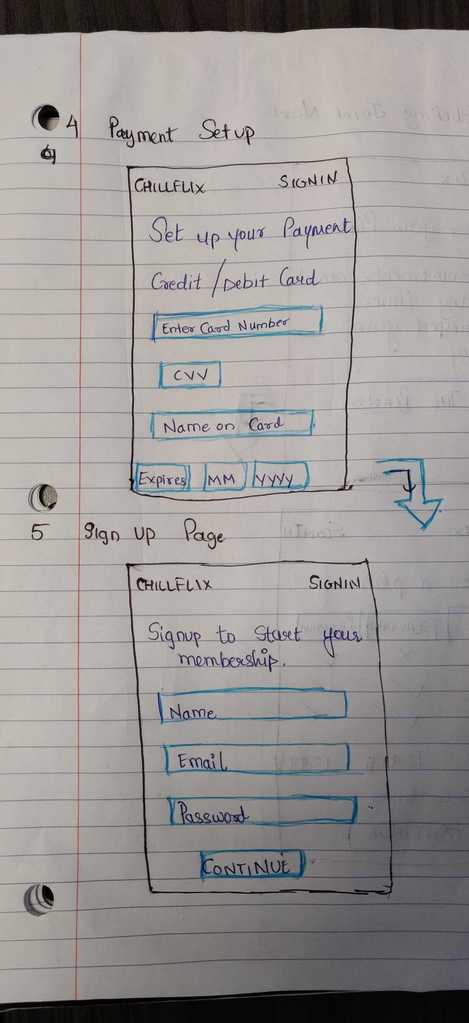 4 Payment Setup
CHILLFLIX SIGNIN
Set up your Payment
Credit / Debit Card
Enter Card Number
CVV
Name on Card
Expires MM YYYY
5 Sign up Page
CHILLFLIX SIGNIN
Signup to Start your
membership.
Name
Email
Password
CONTINUE